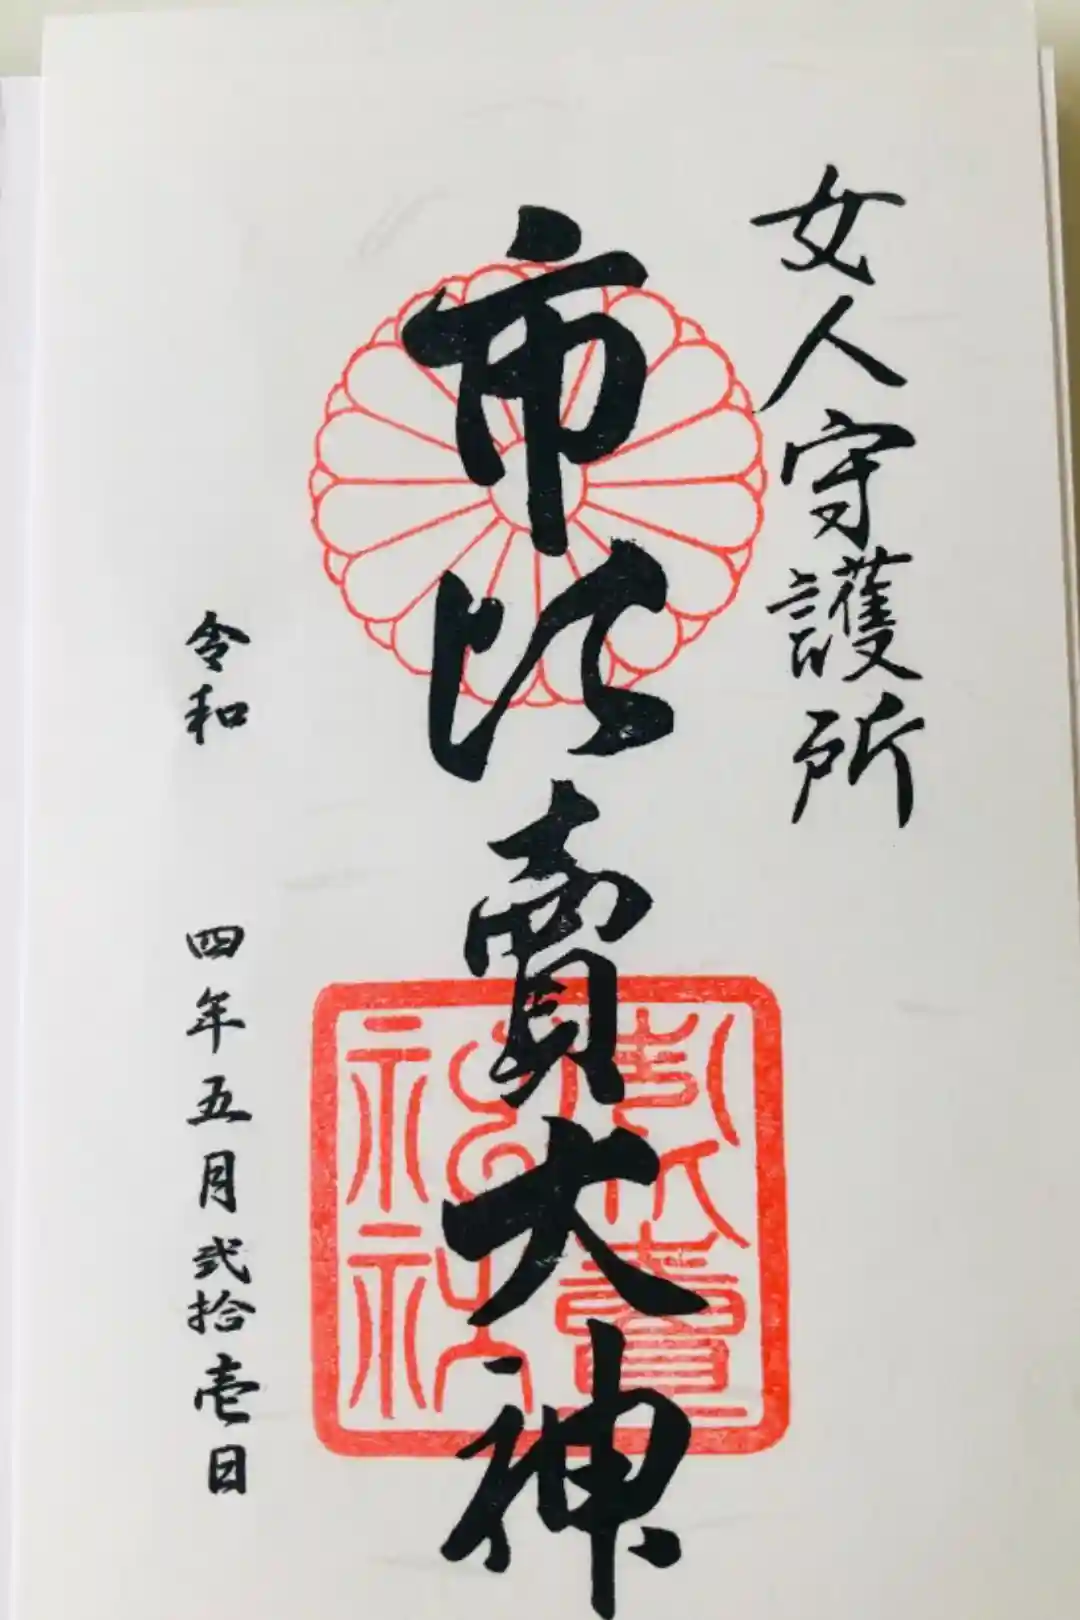 女人守護所
市比賣大神
令和四年五月弐拾壱日